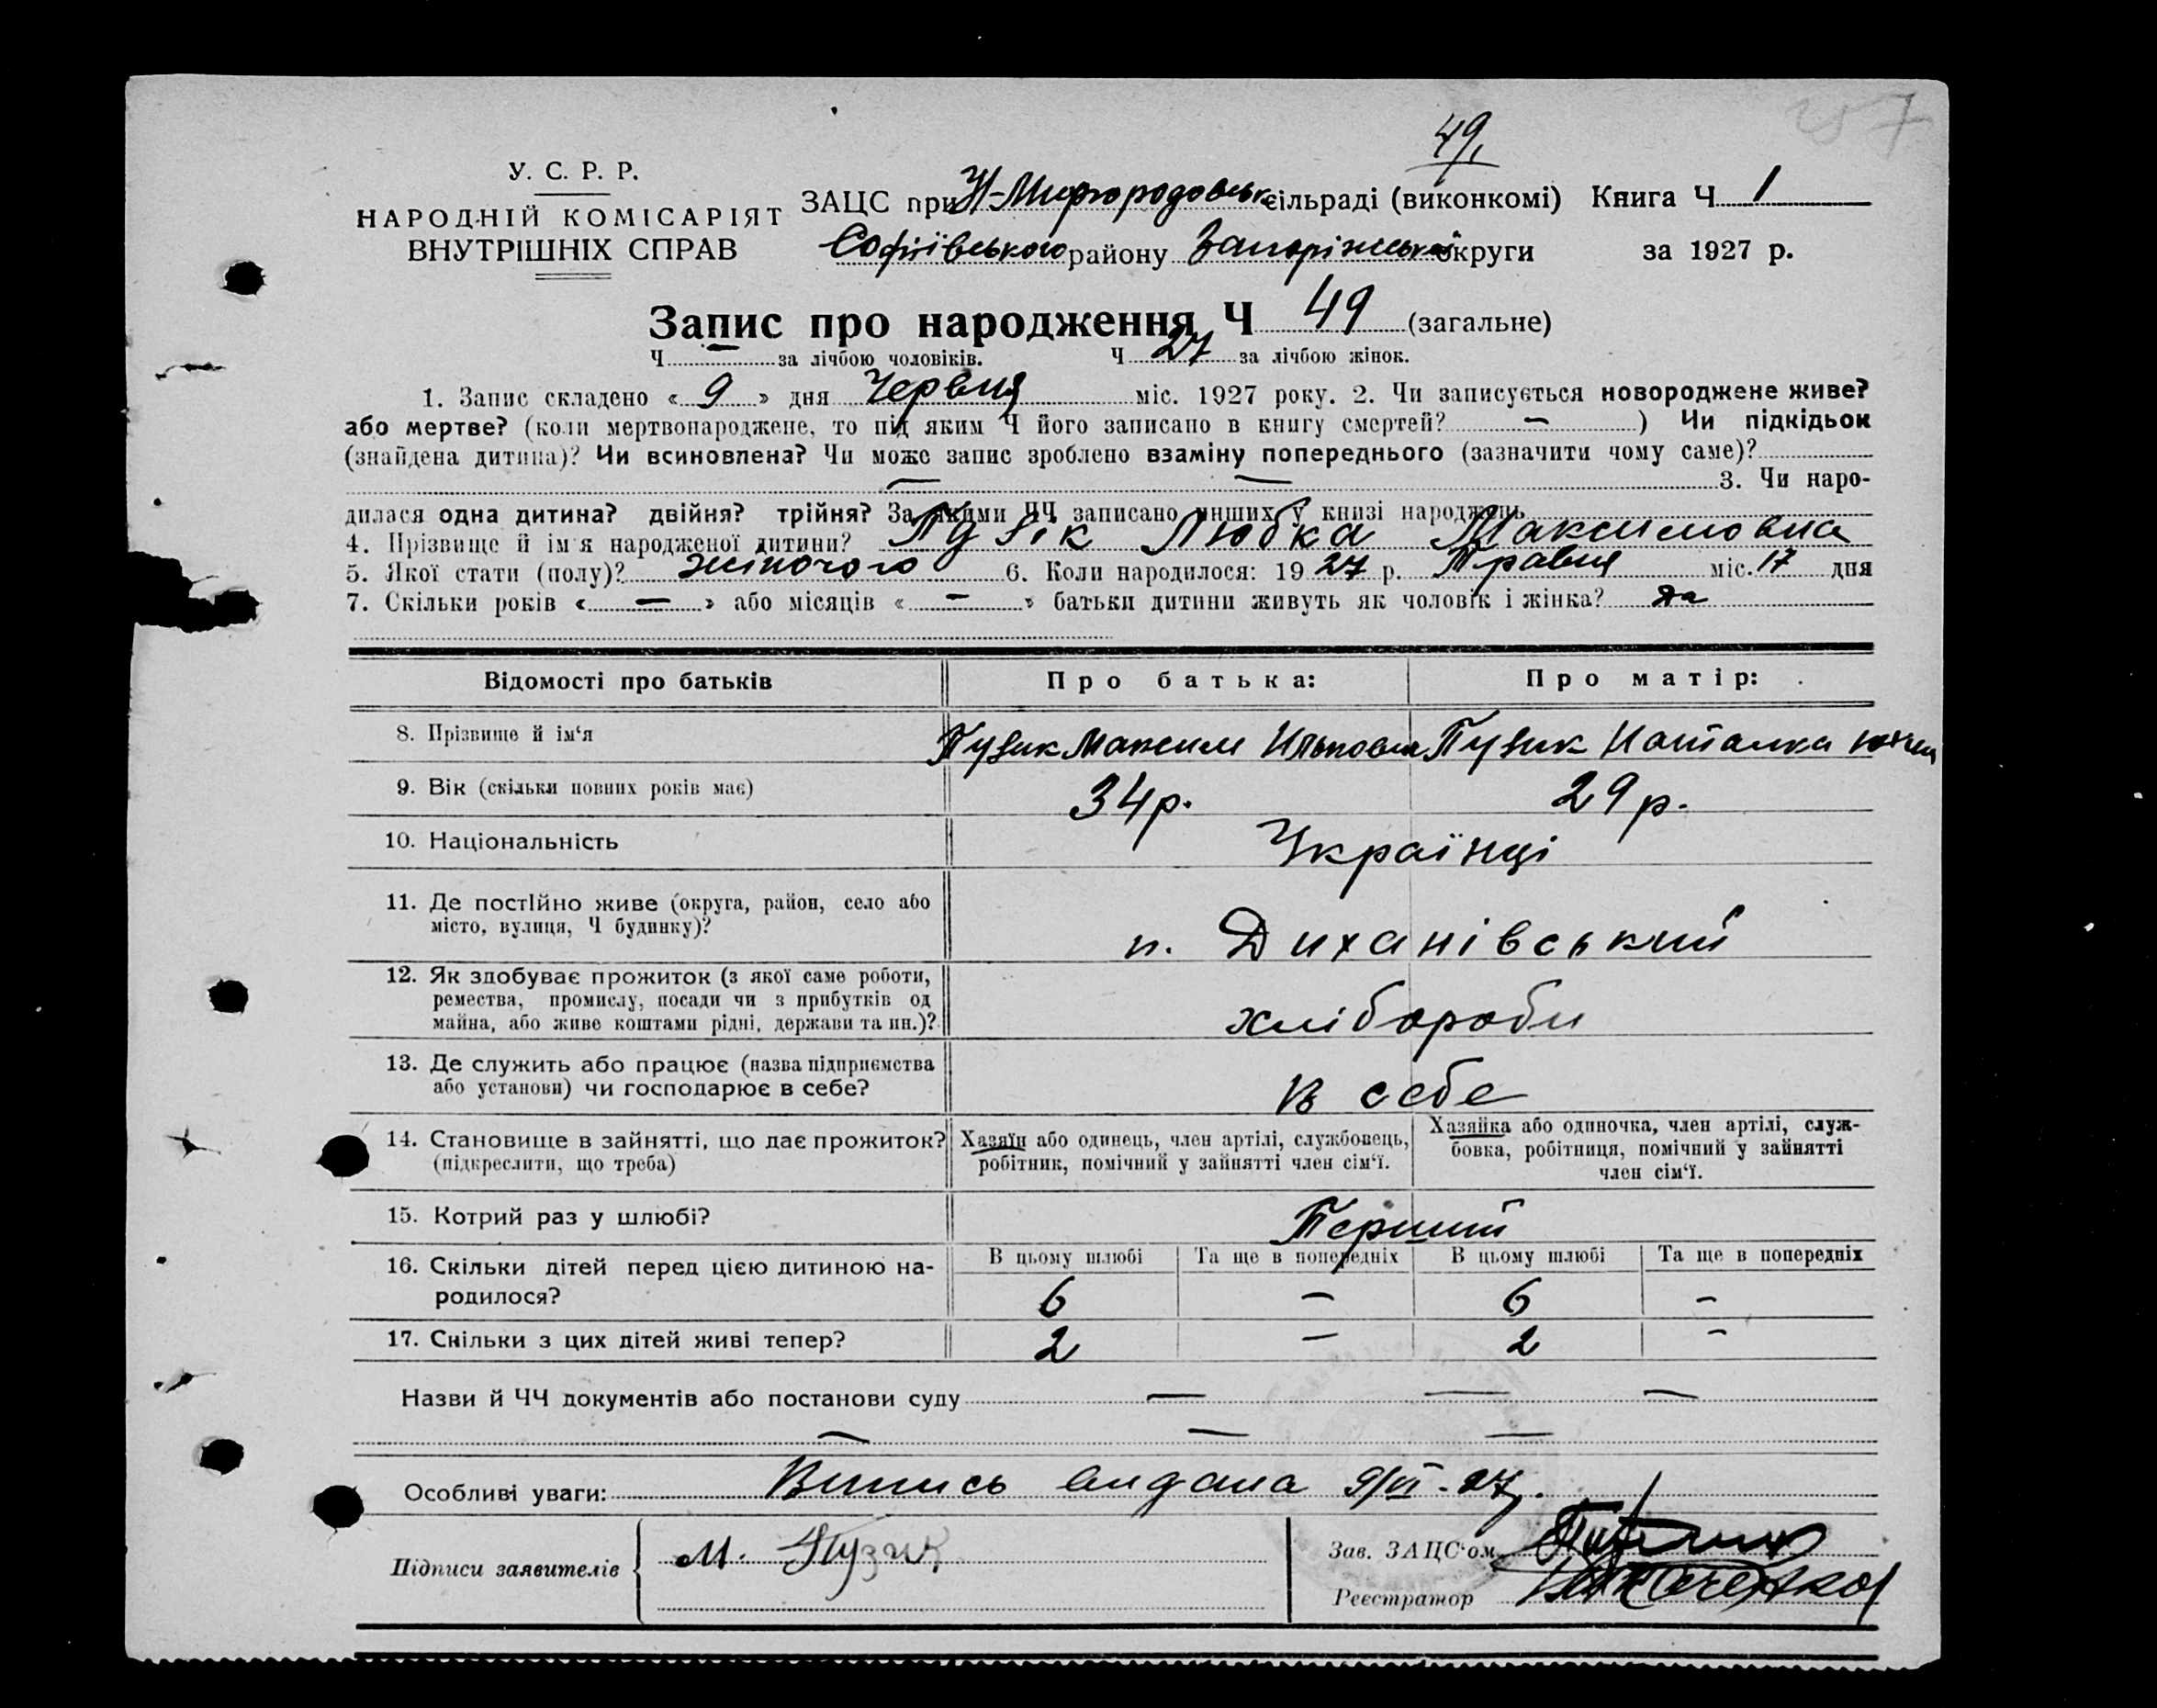 257
49
У. С. Р. Р.
НАРОДНІЙ КОМІСАРІЯТ
ВНУТРІШНІХ СПРАВ
ЗАЦС при Н-Миргородовськ сільраді (виконкомі) Книга Ч 1
Софіївського району Запоріжської округи за 1927 р.
Запис про народження Ч 49 (загальне)
Ч — за лічбою чоловіків. Ч 27 за лічбою жінок.
1. Запис складено « 9 » дня Червня міс. 1927 року. 2. Чи записується новороджене живе?
або мертве? (коли мертвонароджене, то під яким Ч його записано в книгу смертей? — ) Чи підкідьок
(знайдена дитина)? Чи всиновлена? Чи може запис зроблено взаміну попереднього (зазначити чому саме)?
— — 3. Чи наро-
дилася одна дитина? двійня? трійня? За якими ЧЧ записано инших у книзі народжень
4. Прізвище й ім'я народженої дитини? Пузік Любка Максимовна
5. Якої стати (полу)? жіночого 6. Коли народилося: 19 27 р. Травня міс. 17 дня
7. Скільки років « — » або місяців « — » батьки дитини живуть як чоловік і жінка? да
Відомості про батьків Про батька: Про матір:
8. Прізвище й ім‘я Пузик Максим Пузик Наталка
9. Вік (скільки повних років має) 34 р. 29 р.
10. Національність Українці
11. Де постійно живе (округа, район, село або
місто, вулиця, Ч будинку)? п. Диханівський
12. Як здобуває прожиток (з якої саме роботи,
ремества, промислу, посади чи з прибутків од
майна, або живе коштами рідні, держави та ин.)? хлібороби
13. Де служить або працює (назва підприємства
або установи) чи господарює в себе? в себе
14. Становище в зайнятті, що дає прожиток? Хазяїн або одинець, член артілі, службовець, Хазяйка або одиночка, член артілі, служ-
(підкреслити, що треба) робітник, помічний у зайнятті член сім‘ї. бовка, робітниця, помічний у зайнятті
член сім‘ї.
15. Котрий раз у шлюбі? Перший
16. Скільки дітей перед цією дитиною на- В цьому шлюбі Та ще в попередніх В цьому шлюбі Та ще в попередніх
родилося? 6 — 6 —
17. Скільки з цих дітей живі тепер? 2 — 2 —
Назви й ЧЧ документів або постанови суду — — —
— — —
Особливі уваги: Випись видана 9/VI-27 р.
Підписи заявителів М. Пузик Зав. ЗАЦС‘ом
Реєстратор